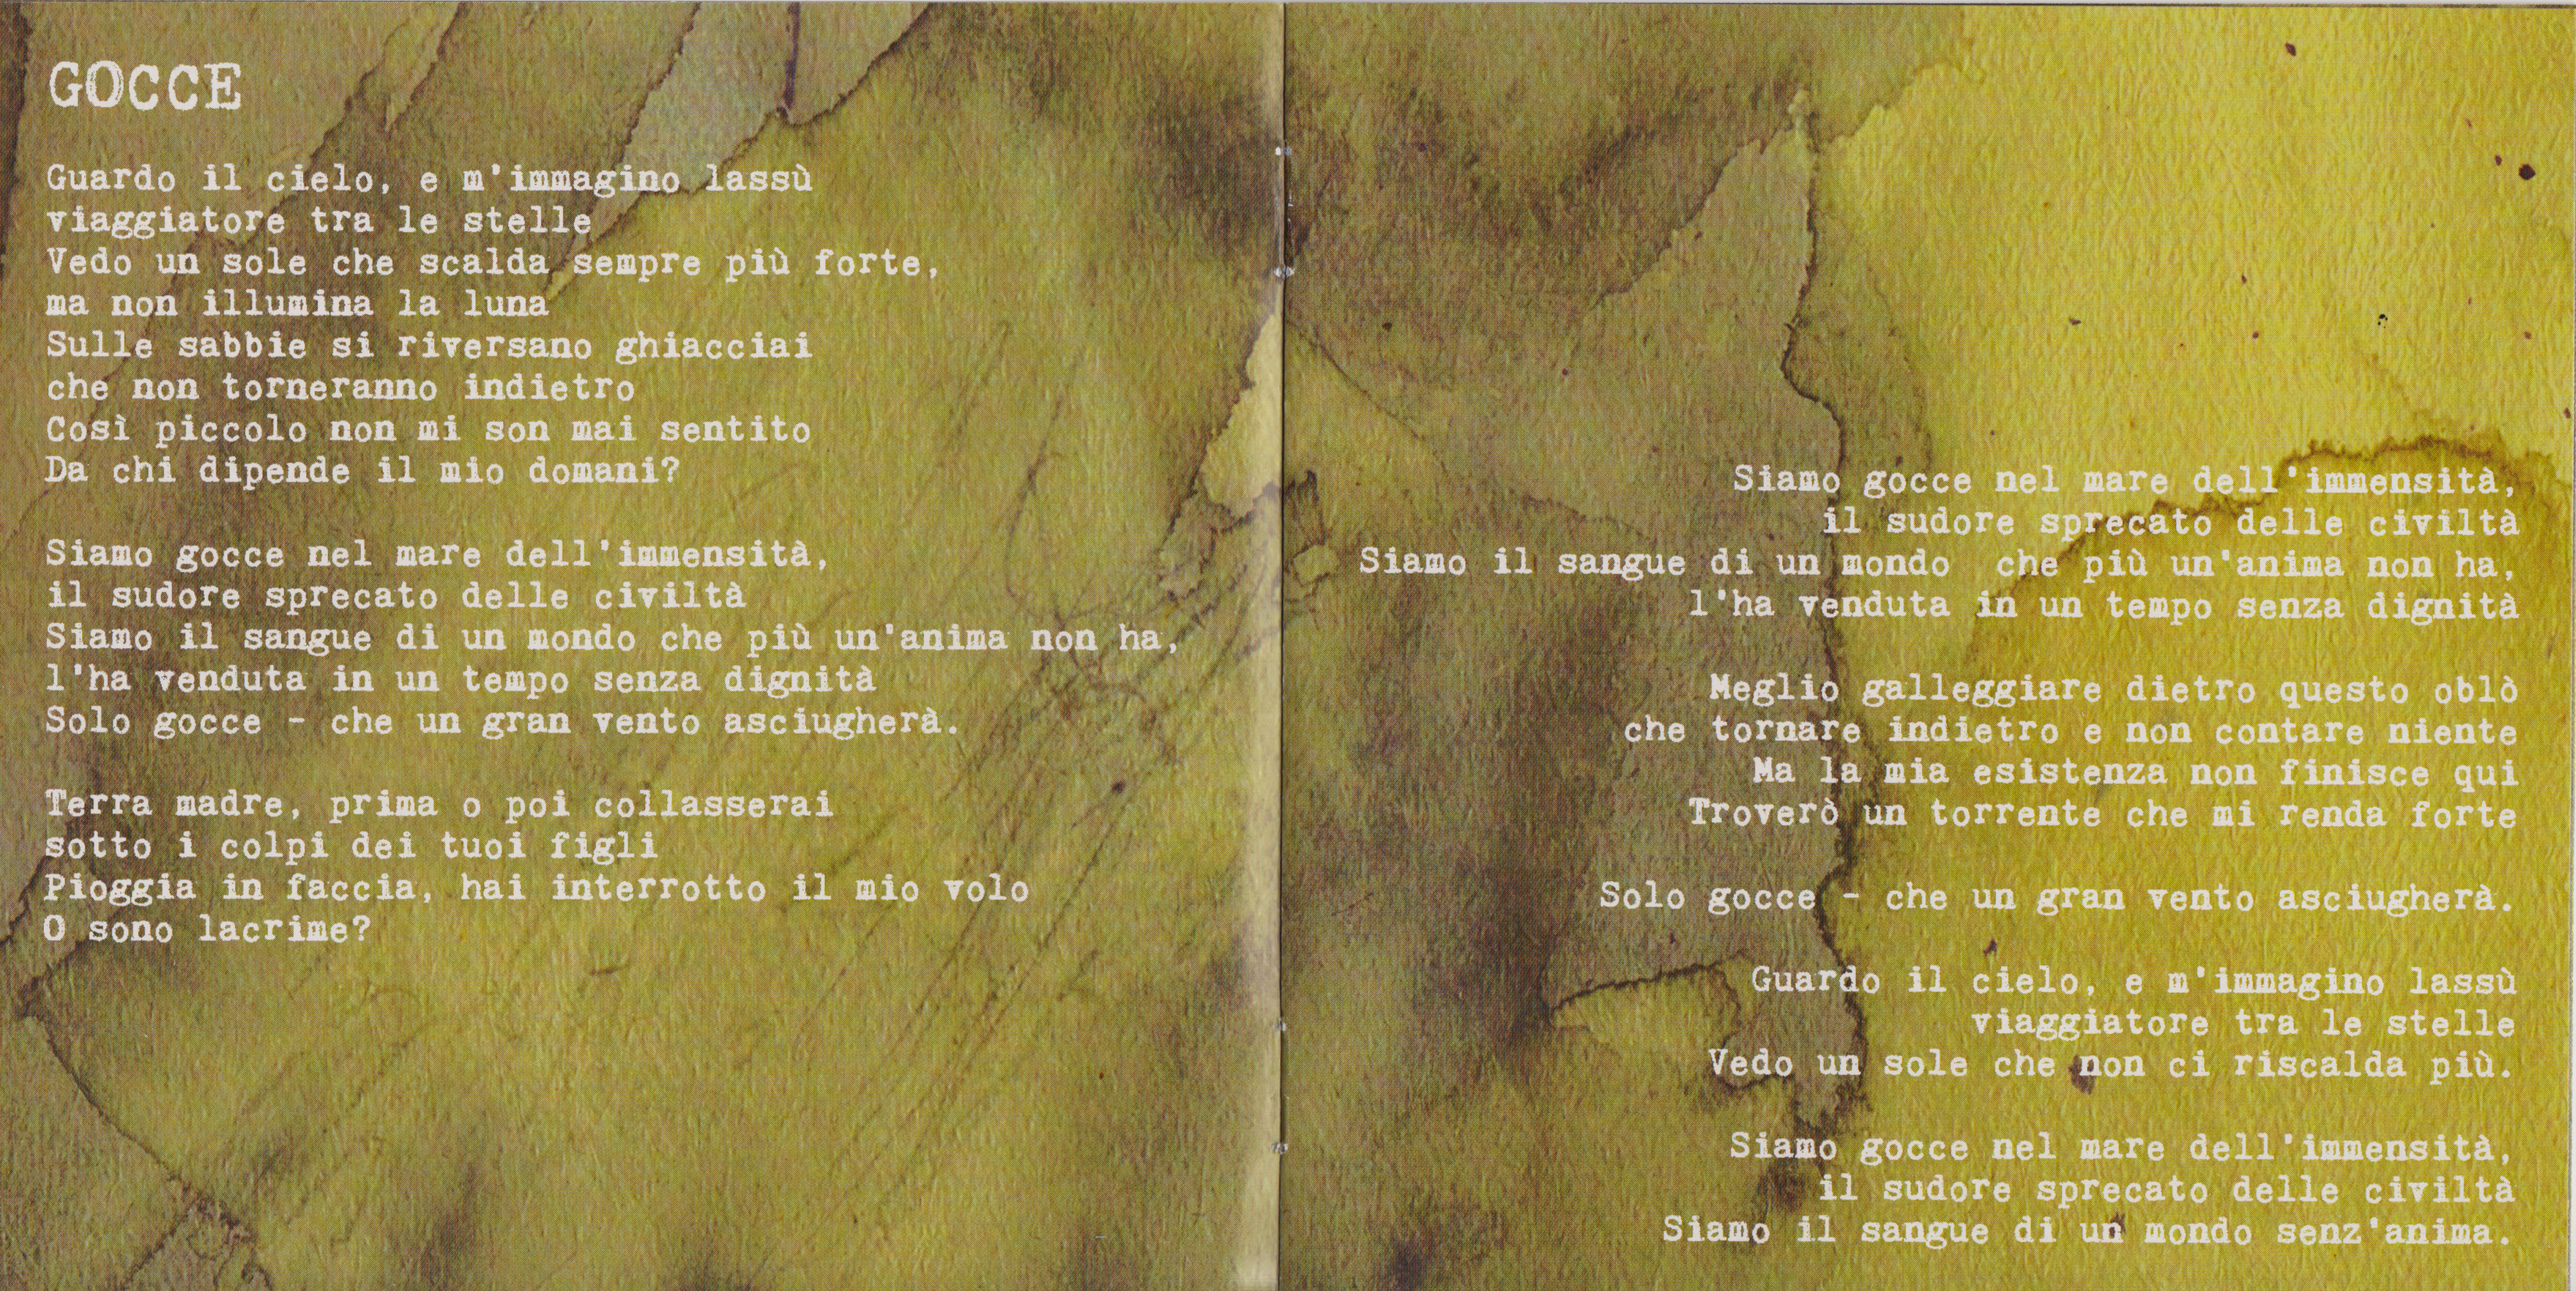 GOCCE
Guardo il cielo, e m'immagino lassù
viaggiatore tra le stelle
Vedo un sole che scalda sempre più forte,
ma non illumina la luna
Sulle sabbie si riversano ghiacciai
che non torneranno indietro
Così piccolo non mi son mai sentito
Da chi dipende il mio domani?
Siamo gocce nel mare dell'immensità,
il sudore sprecato delle civiltà
Siamo il sangue di un mondo che più un'anima non ha,
l'ha venduta in un tempo senza dignità
Solo gocce - che un gran vento asciugherà.
Terra madre, prima o poi collasserai
sotto i colpi dei tuoi figli
Pioggia in faccia, hai interrotto il mio volo
O sono lacrime?
Siamo gocce nel mare dell'immensità,
il sudore sprecato delle civiltà
Siamo il sangue di un mondo che più un'anima non ha,
l'ha venduta in un tempo senza dignità
Meglio galleggiare dietro questo oblò
che tornare indietro e non contare niente
Ma la mia esistenza non finisce qui
Troverò un torrente che mi renda forte
Solo gocce - che un gran vento asciugherà.
Guardo il cielo, e m'immagino lassù
viaggiatore tra le stelle
Vedo un sole che non ci riscalda più.
Siamo gocce nel mare dell'immensità,
il sudore sprecato delle civiltà
Siamo il sangue di un mondo senz'anima.